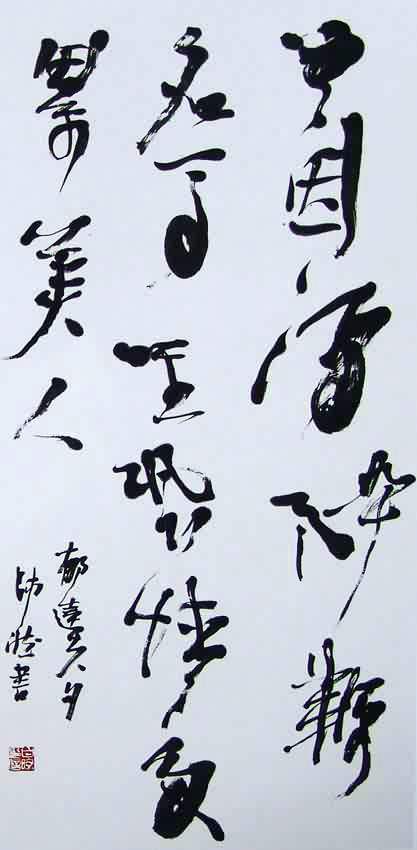 曾因酒醉鞭
名馬生恐情多
累美人
郁達夫句
書